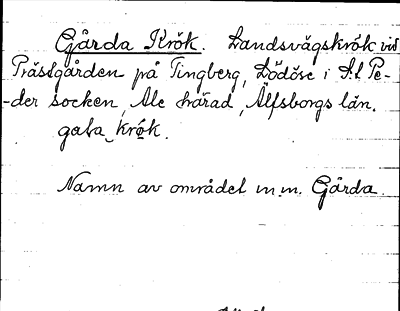 Gårda Krôk. Landsvägskrôk vid
Prästgården på Tingberg, Lödöse i S:t Pe-
-der socken, Ale härad, Älfsborgs län.
gaʟa krôk.
Namn av området m.m. Gårda.